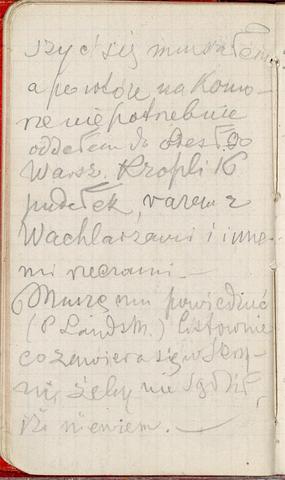 szyć się musiałem
a powtóre na Komo-
rze niepotrzebnie
oddałem do odesł. do
Warsz. Kropli 16
pudełek, razem z
Wachlarzami i inne-
mi rzeczami —
Muszę mu powiedzieć
(P Landsm.) listownie
co zawiera się w Skrzy-
ni, żeby nie sądził,
iż niewiem. —